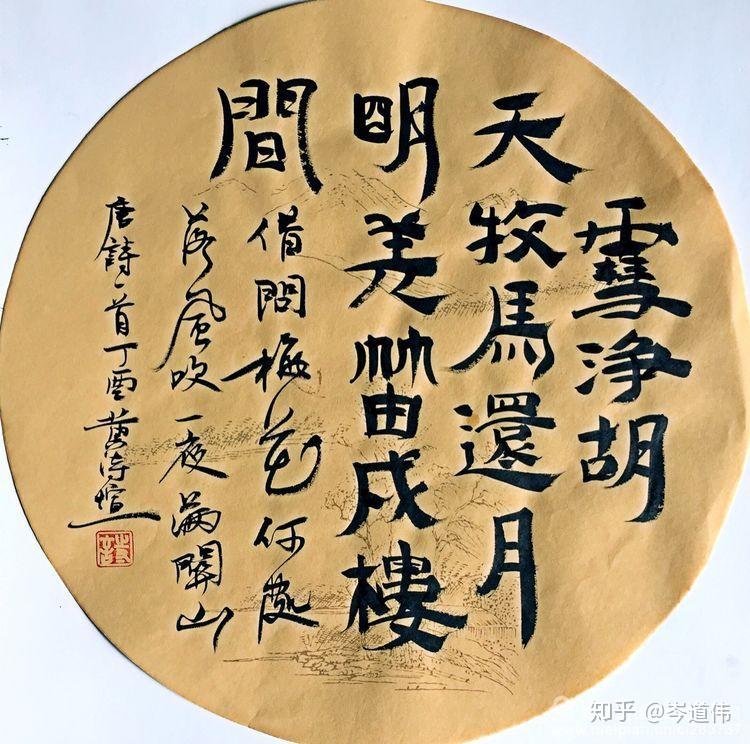 雪淨胡
天牧馬還月
明羌笛戍樓
間
借問梅花何處
落風吹一夜滿關山
唐詩一首丁酉黃
知乎 @岑道伟